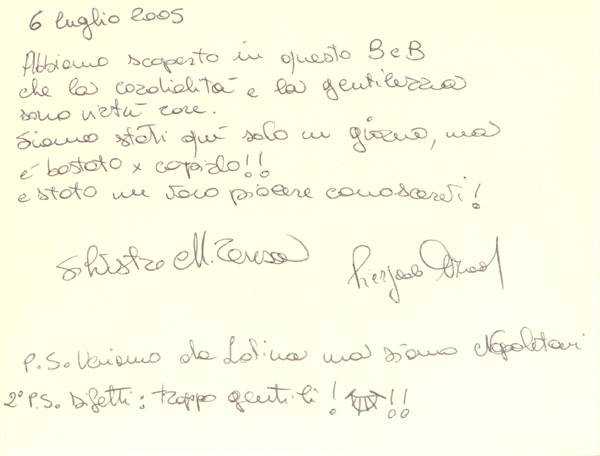 6 luglio 2005
Abbiamo scoperto in questo B e B
che la cordialità e la gentilezza
sono virtù rare.
Siamo stati quì solo un giorno, ma
é bastato x capirlo!!
è stato un vero piacere conoscervi!
M. Teresa
P.S. Veniamo da Latina ma siamo Napoletani
2° P.S. Difetti: troppo gentili! !!